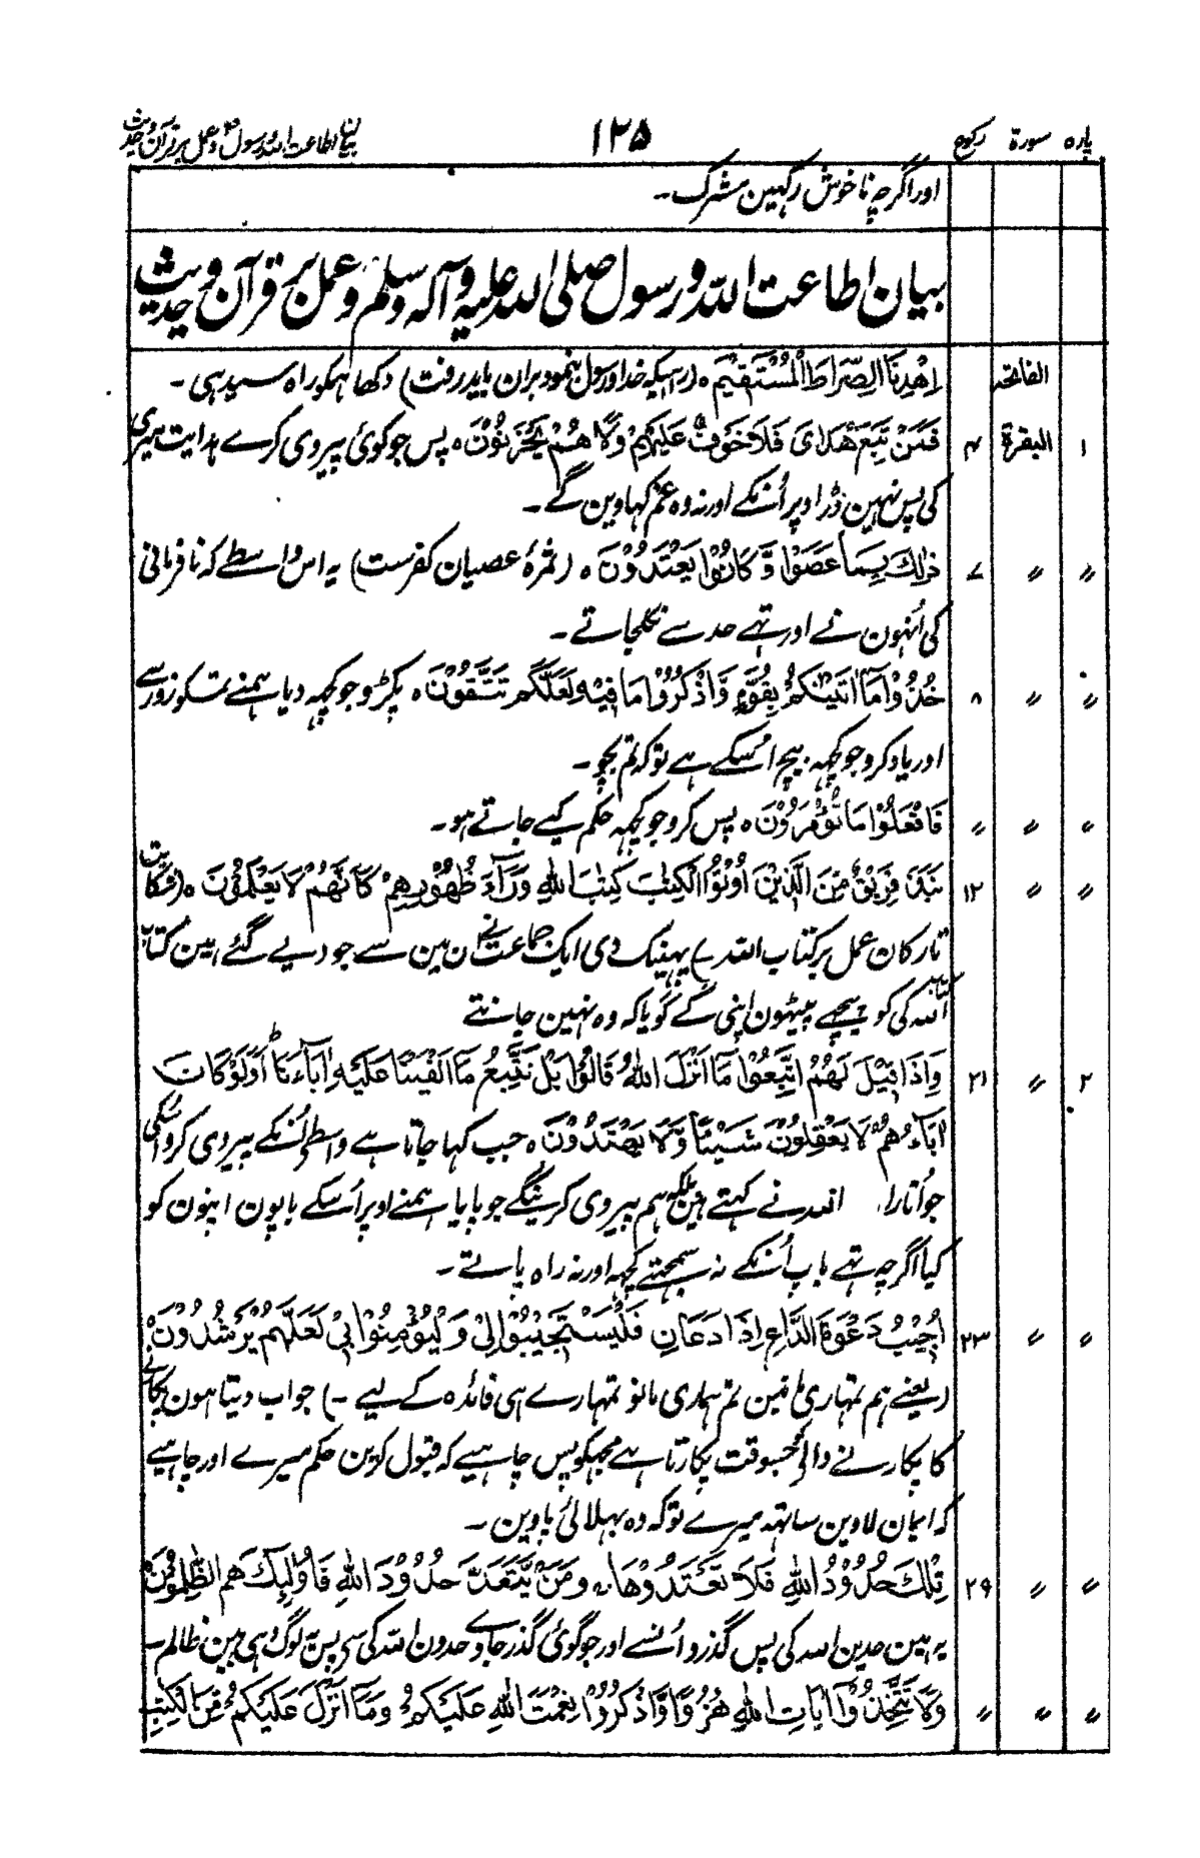 پارہ سورۃ رکوع ۱۲۵ اطاعت اللہ و رسول و عمل بر قرآن و حدیث
اور اگرچہ ناخوش رکہین مشرک۔
بیان اطاعت اللہ و رسول صلی اللہ علیہ و آلہ وسلم و عمل بر قرآن و حدیث
الفاتحہ اِهْدِنَا الصِّرَاطَ الْمُسْتَقِيْمَ ہ (راہیکہ خدا و رسول نمود بران باید رفت) دکھا ہمکو راہ سیدہی۔
۱ البقرۃ ۴ فَمَنْ تَبِعَ هُدَايَ فَلَا خَوْفٌ عَلَيْهِمْ وَلَا هُمْ يَحْزَنُوْنَ ہ پس جو کوئی پیروی کرے ہدایت میری
کی پس نہین ڈر اوپر اُنکے اور نہ وہ غم کہاوین گے۔
〃 〃 ۷ ذٰلِكَ بِمَا عَصَوْا وَّكَانُوْا يَعْتَدُوْنَ ہ (ثمرۂ عصیان کفرست) یہ اس واسطے کہ نافرمانی
کی اُنہون نے اور تہے حد سے نکلجاتے۔
〃 〃 ۸ خُذُوْا مَآ اٰتَيْنٰكُمْ بِقُوَّةٍ وَّاذْكُرُوْا مَا فِيْهِ لَعَلَّكُمْ تَتَّقُوْنَ ہ پکڑو جو کچہہ دیا ہمنے تمکو زور سے
اور یاد کرو جو کچہہ بیچ اُسکے ہے تو کہ تم بچو۔
〃 〃 〃 فَافْعَلُوْا مَا تُؤْمَرُوْنَ ہ پس کرو جو کچہہ حکم کیے جاتے ہو۔
〃 〃 ۱۲ نَبَذَ فَرِيْقٌ مِّنَ الَّذِيْنَ اُوْتُوا الْكِتٰبَ كِتٰبَ اللّٰهِ وَرَآءَ ظُهُوْرِهِمْ كَاَنَّهُمْ لَا يَعْلَمُوْنَ ہ (شکایت
تارکان عمل بر کتاب اللہ) پہینک دی ایک جماعت نے اُن مین سے جو دیے گئے ہین کتاب
کتاب اللہ کی کو پیچہے پیٹہون اپنی کے گویا کہ وہ نہین جانتے
۲ 〃 ۲۱ وَاِذَا قِيْلَ لَهُمُ اتَّبِعُوْا مَآ اَنْزَلَ اللّٰهُ قَالُوْا بَلْ نَتَّبِعُ مَآ اَلْفَيْنَا عَلَيْهِ اٰبَآءَنَا اَوَلَوْ كَانَ
اٰبَآءُهُمْ لَا يَعْقِلُوْنَ شَيْئًا وَّلَا يَهْتَدُوْنَ ہ جب کہا جاتا ہے واسطے اُنکے پیروی کرو اسکی
جو اُتارا اللہ نے کہتے ہین بلکہ ہم پیروی کرینگے جو پایا ہمنے اوپر اُسکے باپون اپنون کو
کیا اگرچہ تہے باپ اُنکے نہ سمجہتے کچہہ اور نہ راہ پاتے۔
〃 〃 ۲۳ اُجِيْبُ دَعْوَةَ الدَّاعِ اِذَا دَعَانِ فَلْيَسْتَجِيْبُوْا لِيْ وَلْيُؤْمِنُوْا بِيْ لَعَلَّهُمْ يَرْشُدُوْنَ ہ
(یعنے ہم تمہاری مانین تم ہماری مانو تمہارے ہی فائدہ کے لیے۔) جواب دیتا ہون پکارنے
کا پکارنے والیکی جسوقت پکارتا ہے مجہکو پس چاہیے کہ قبول کرین حکم میرے اور چاہیے
کہ ایمان لاوین ساتہہ میرے تو کہ وہ بہلائی پاوین۔
〃 〃 ۲۹ تِلْكَ حُدُوْدُ اللّٰهِ فَلَا تَعْتَدُوْهَا ۚ وَمَنْ يَّتَعَدَّ حُدُوْدَ اللّٰهِ فَاُولٰٓئِكَ هُمُ الظّٰلِمُوْنَ
یہ ہین حدین اللہ کی پس مت گذرو اُنسے اور جو کوئی گذر جاوے حدون اللہ کی سے پس یہ لوگ وہی ہین ظالم۔
〃 〃 〃 وَلَا تَتَّخِذُوْٓا اٰيَاتِ اللّٰهِ هُزُوًا وَّاذْكُرُوْا نِعْمَتَ اللّٰهِ عَلَيْكُمْ وَمَآ اَنْزَلَ عَلَيْكُمْ مِّنَ الْكِتٰبِ